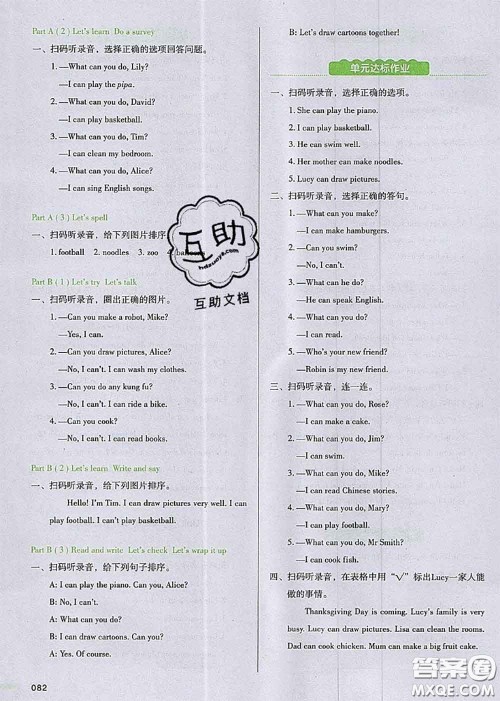 Part A ( 2 ) Let's learn  Do a survey
一、扫码听录音，选择正确的选项回答问题。
1. —What can you do, Lily?
—I can play the pipa.
2. —What can you do, David?
—I can play basketball.
3. —What can you do, Tim?
—I can clean my bedroom.
4. —What can you do?
—I can sing English songs.
Part A ( 3 ) Let's spell
一、扫码听录音，给下列图片排序
1. football  2. noodles  3. zoo
Part B ( 1 ) Let's try  Let's talk
一、扫码听录音，圈出正确的图片。
1. —Can you make a robot, Mike?
—Yes, I can.
2. —Can you draw pictures, Alice?
—No, I can't. I can wash my clothes.
3. —Can you do any kung fu?
—No, I can't. I can ride a bike.
4. —Can you cook?
—No, I can't. I can read books.
Part B ( 2 ) Let's learn  Write and say
一、扫码听录音，给下列图片排序。
Hello! I'm Tim. I can draw pictures very well. I can
play football. I can't play basketball.
Part B ( 3 ) Read and write  Let's check  Let's wrap it up
一、扫码听录音，给下列句子排序。
A: I can play the piano. Can you, Alice?
B: No, I can't.
A: What can you do?
B: I can draw cartoons. Can you?
A: Yes. Of course.
082
B: Let's draw cartoons together!
单元达标作业
一、扫码听录音，选择正确的选项。
1. She can play the piano.
2. I can play basketball.
3. He can swim well.
4. Her mother can make noodles.
5. Lucy can draw pictures.
二、扫码听录音，选择正确的答句。
1. —What can you make?
—I can make hamburgers.
2. —Can you swim?
—No, I can't.
3. —What can he do?
—He can speak English.
4. —What can you do?
—I can read.
5. —Who's your new friend?
—Robin is my new friend.
三、扫码听录音，连一连。
1. —What can you do, Rose?
—I can make a cake.
2. —What can you do, Jim?
—I can swim.
3. —What can you do, Mike?
—I can read Chinese stories.
4. —What can you do?
—I can play football.
5. —What can you do, Mr Smith?
—I can cook fish.
四、扫码听录音，在表格中用“√”标出Lucy一家人能
做的事情。
Thanksgiving Day is coming. Lucy's family is very
busy. Lucy can draw pictures. Lisa can clean the rooms.
Dad can cook chicken. Mum can make big fruit cake.
互助
互助文档
答案圈
MXQE.COM